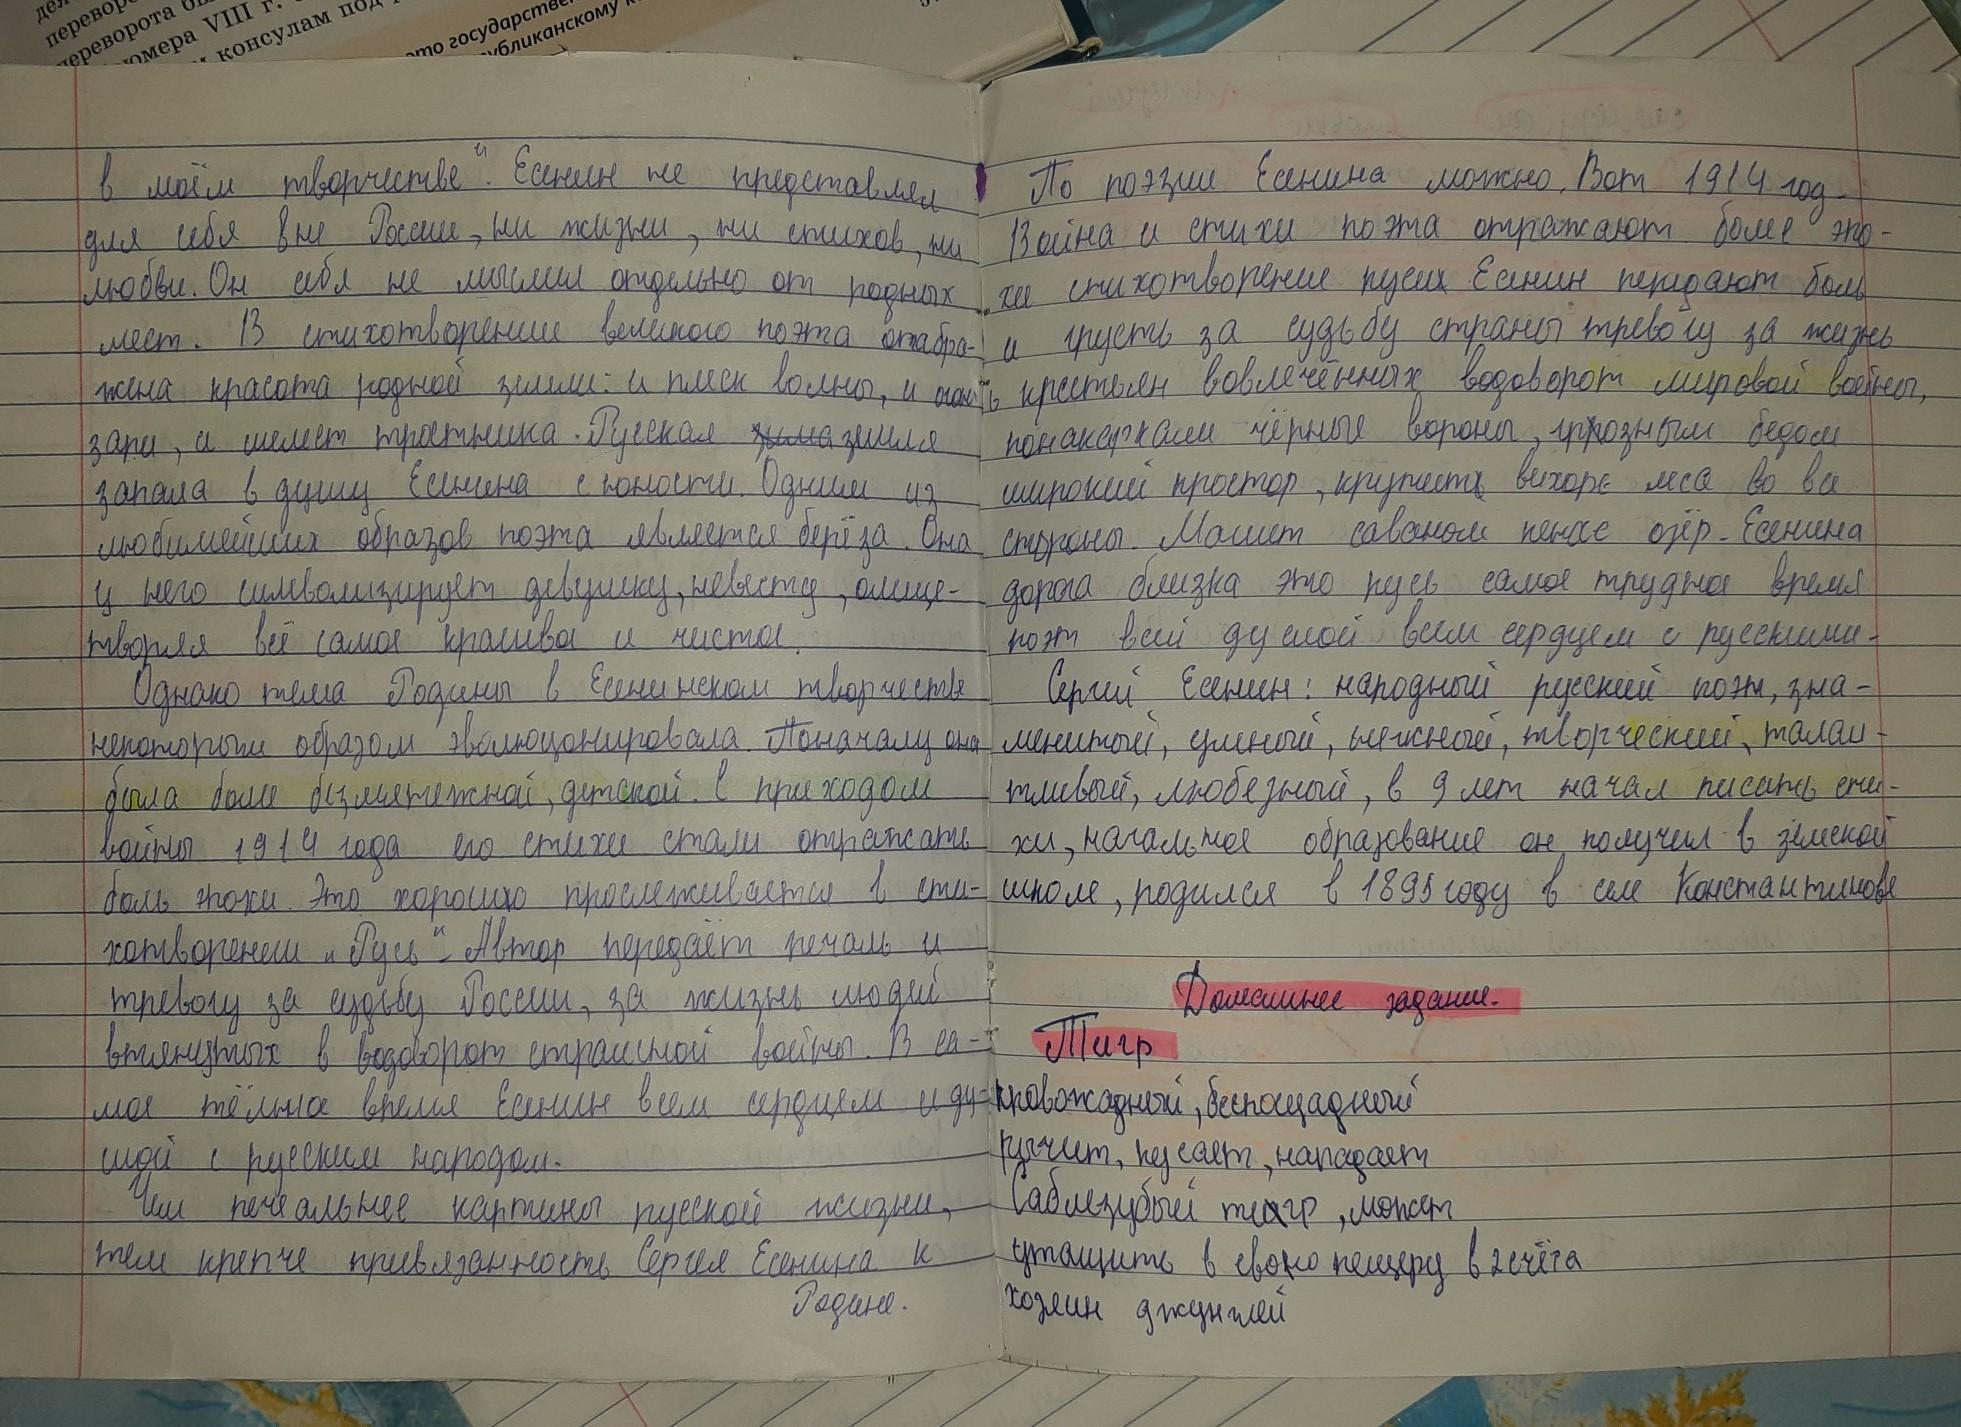 переворота
юмера VIII г.
консулам под
это государствен
публиканскому
в моём творчестве". Есенин не представлял
для себя вне России, ни жизни, ни стихов, ни
любви. Он себя не мыслил отдельно от родных
мест. В стихотворении великого поэта отабра-
жена красота родной земли: и плеск волны, и огонь
зари, и шелест тростника. Русская земля
запала в душу Есенина с юности. Одним из
любимейших образов поэта является берёза. Она
у него символизирует девушку, невесту, олице-
творяя всё самое красивое и чистое.
Однако тема Родины в Есенинском творчестве
некоторым образом эволюционировала. Поначалу она
была более безмятежной, детской. С приходом
войны 1914 года его стихи стали отражать
боль эпохи. Это хорошо прослеживается в сти-
хотворении „Русь". Автор передаёт печаль и
тревогу за судьбу России, за жизнь людей
втянутых в водоворот страшной войны. В са-
мое тёмное время Есенин всем сердцем и ду-
шой с русским народом.
Чем печальнее картины русской жизни,
тем крепче привязанность Сергея Есенина к
Родине.
По поэзии Есенина можно. Вот 1914 год-
Война и стихи поэта отражают боле эпо-
хи стихотворение русих Есенин передают боль
и грусть за судьбу страны тревогу за жизнь
крестьян вовлечённых водоворот мировой войны,
понакаркали чёрные вороны, грозным бедам
широкий простор, крутисть вихорь леса во все
стороны. Машет саваном пенає озёр. Есенина
дорога близка это русь самое трудное время
поэт всей душой всем сердцем с русскими.
Сергей Есенин: народный русский поэт, зна-
менитый, умный, нежный, творческий, талан-
тливый, любезный, в 9 лет начал писать сти-
хи, начальное образование он получил в земской
школе, родился в 1895 году в селе Константинове
Домашнее задание.
Тигр
кровожадный, беспощадный
рычит, кусает, нападает
Саблезубый тигр, может
утащить в свою пещеру в 2 счёта
хозяин джунглей